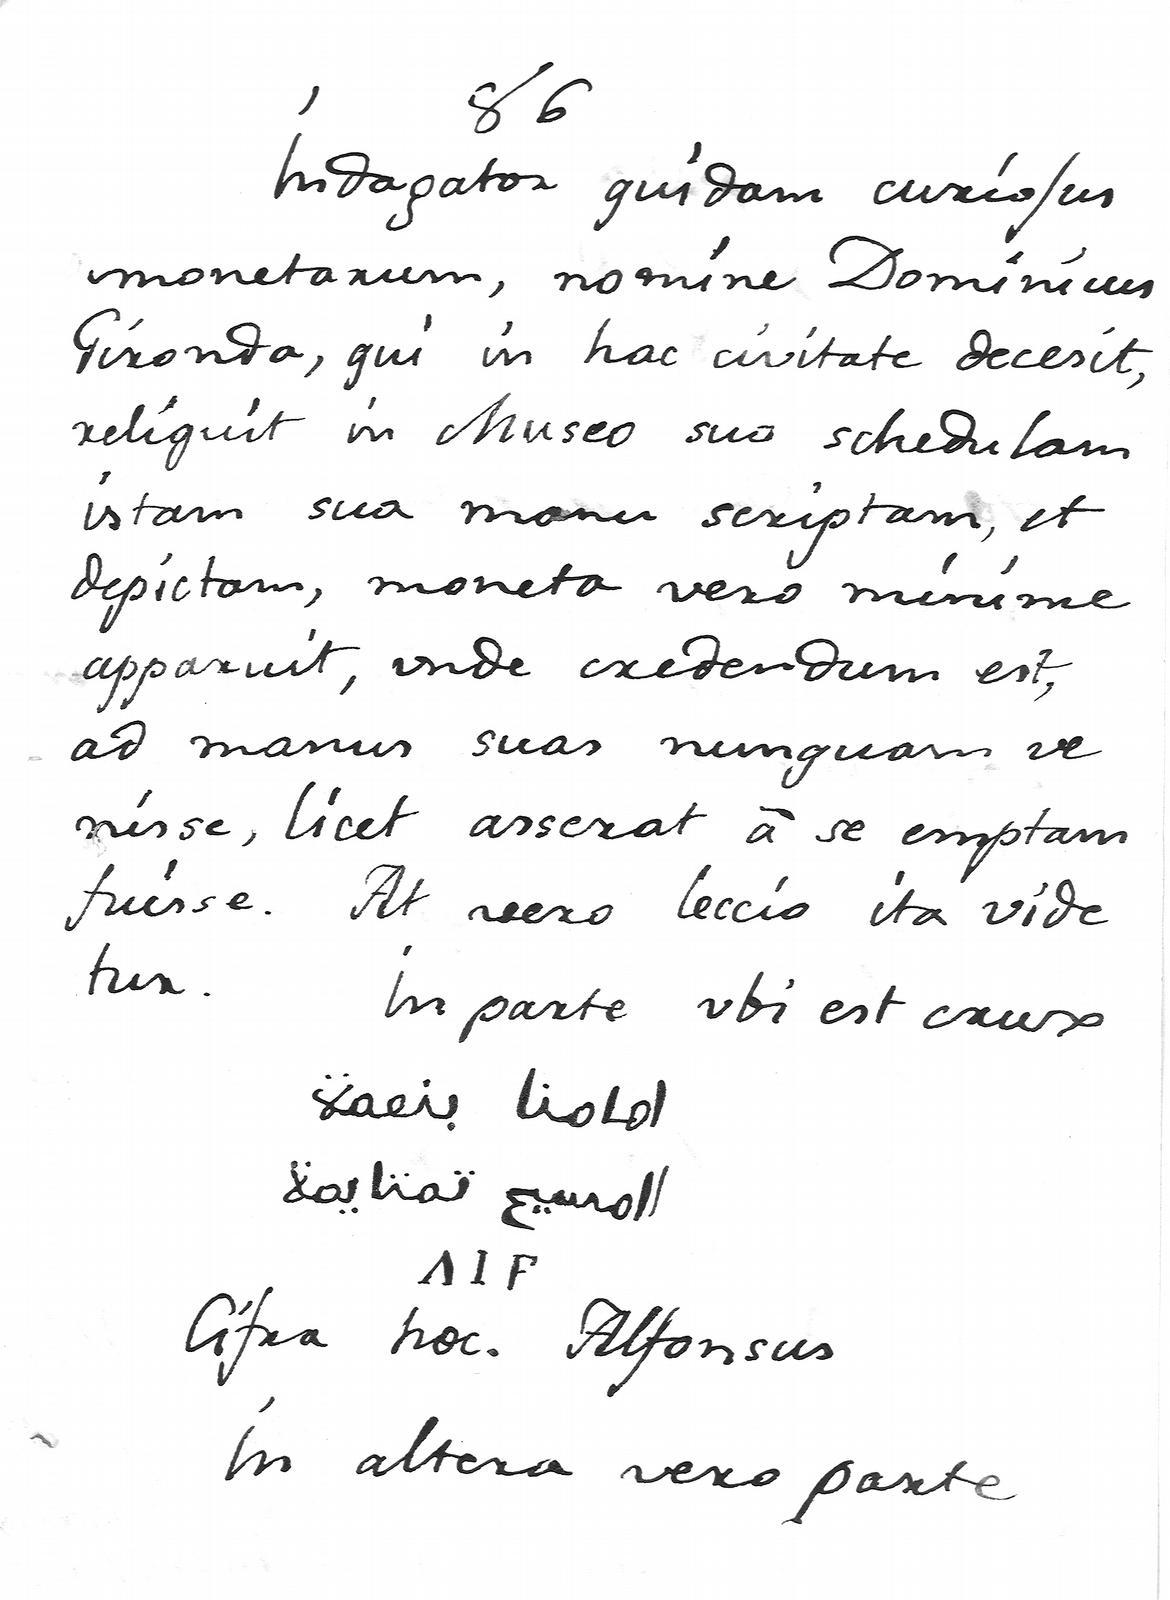 86
Indagator quidam curiosus
monetarum, nomine Dominicus
Gironda, qui in hac civitate decesit,
reliquit in Museo suo schedulam
istam sua manu scriptam, et
depictam, moneta vero minime
apparuit, vnde credendum est,
ad manus suas nunquam ve
nisse, licet asserat ā se emptam
fuisse. At vero leccio ita vide
tur. In parte vbi est crux
بنعمة
المسيح
ΛIF
Cifra hœc. Alfonsus
In altera vero parte